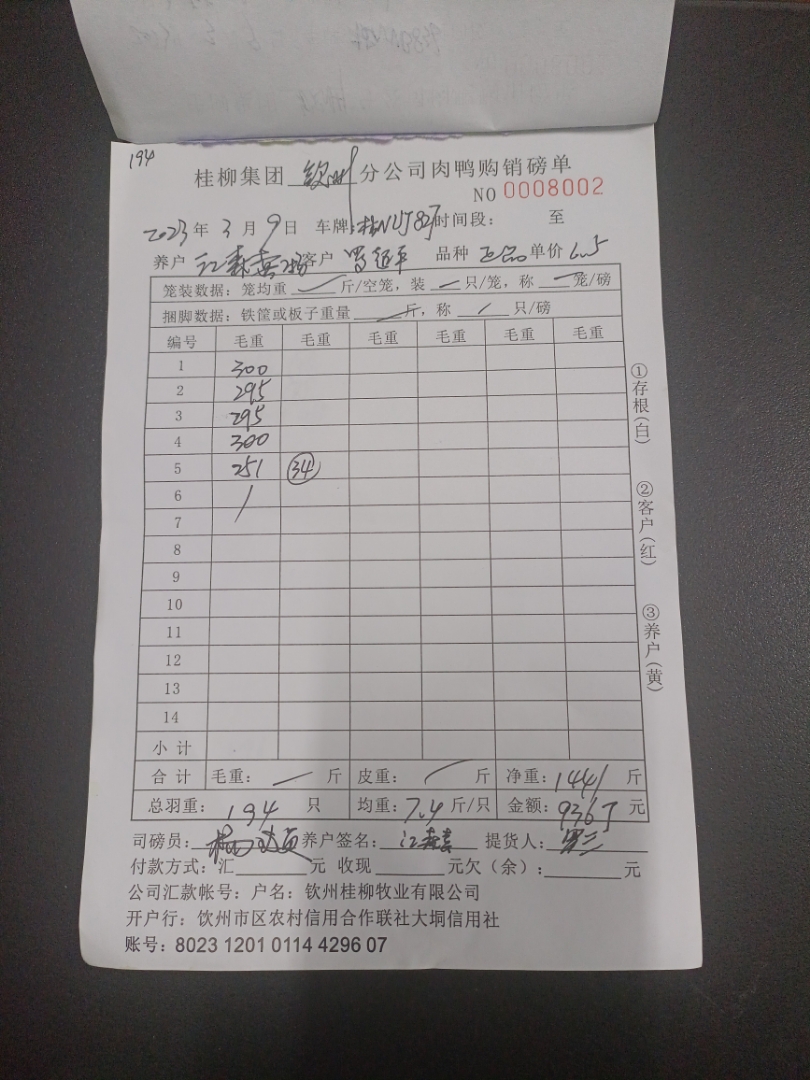 194
桂柳集团 钦州 分公司肉鸭购销磅单
NO 0008002
2023年 3月 9日 车牌: 时间段: 至
养户 江森 客户 罗廷平 品种 正品 单价 6.5
笼装数据: 笼均重 一 斤/空笼, 装 一 只/笼, 称 一 笼/磅
捆脚数据: 铁筐或板子重量 一 斤, 称 / 只/磅
编号 毛重 毛重 毛重 毛重 毛重 毛重
1 300
2 295
3 295
4 300
5 251 34
6 /
7
8
9
10
11
12
13
14
小计
合计 毛重: 一 斤 皮重: 一 斤 净重: 1441 斤
总羽重: 194 只 均重: 7.4 斤/只 金额: 9367 元
司磅员: 养户签名: 江森 提货人: 罗三
付款方式: 汇 元 收现 元欠(余): 元
公司汇款帐号: 户名: 钦州桂柳牧业有限公司
开户行: 饮州市区农村信用合作联社大垌信用社
账号: 8023 1201 0114 4296 07
①存根(白)
②客户(红)
③养户(黄)